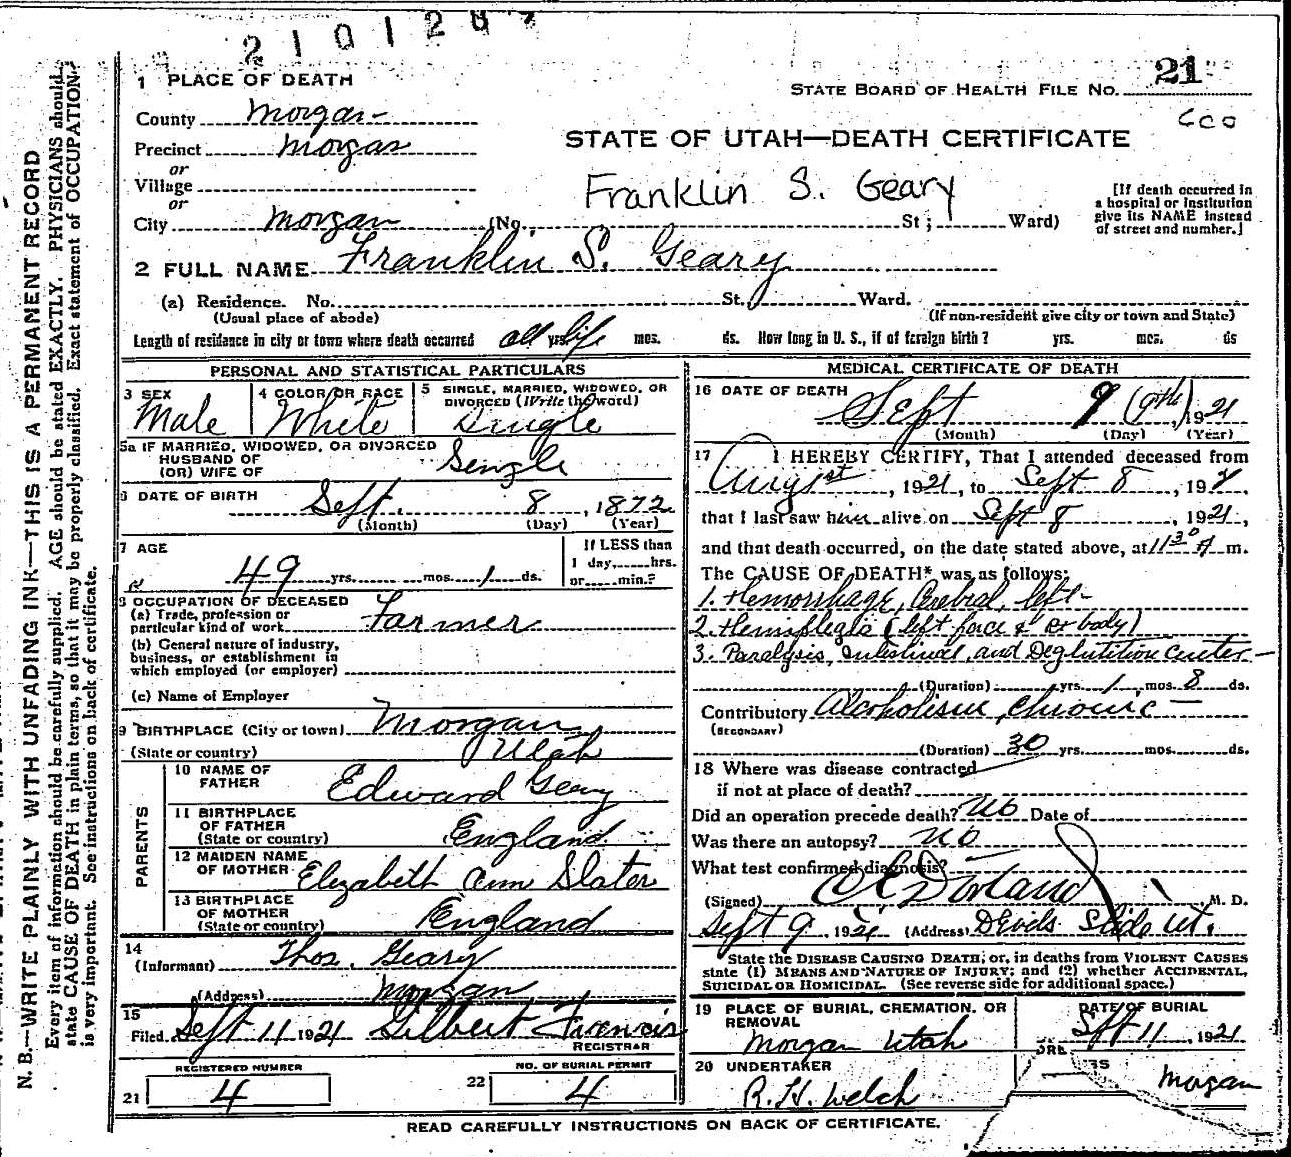 210128
1 PLACE OF DEATH
STATE BOARD OF HEALTH FILE NO. 21
County Morgan
Precinct Morgan
or
Village
or
City Morgan (No. St; Ward)
STATE OF UTAH—DEATH CERTIFICATE
Franklin S. Geary
[If death occurred in
a hospital or institution
give its NAME instead
of street and number.]
2 FULL NAME Franklin S. Geary
(a) Residence. No. St, Ward.
(Usual place of abode) (If non-resident give city or town and State)
Length of residence in city or town where death occurred all yrs. life mos. ds. How long in U. S., if of foreign birth? yrs. mos. ds
PERSONAL AND STATISTICAL PARTICULARS
3 SEX
Male
4 COLOR OR RACE
White
5 SINGLE, MARRIED, WIDOWED, OR
DIVORCED (Write the word)
Single
5a IF MARRIED, WIDOWED, OR DIVORCED
HUSBAND OF
(OR) WIFE OF
Single
6 DATE OF BIRTH
Sept. 8, 1872
(Month) (Day) (Year)
7 AGE
49 yrs. mos. 1 ds.
If LESS than
1 day, hrs.
or min.?
8 OCCUPATION OF DECEASED
(a) Trade, profession or
particular kind of work Farmer
(b) General nature of industry,
business, or establishment in
which employed (or employer)
(c) Name of Employer
9 BIRTHPLACE (City or town) Morgan
(State or country) Utah
PARENTS
10 NAME OF
FATHER Edward Geary
11 BIRTHPLACE
OF FATHER
(State or country) England
12 MAIDEN NAME
OF MOTHER Elizabeth Ann Slater
13 BIRTHPLACE
OF MOTHER
(State or country) England
14
(Informant) Thos. Geary
(Address) Morgan
15
Filed Sept 11 1921 Gilbert Francis
REGISTRAR
REGISTERED NUMBER
21 4
NO. OF BURIAL PERMIT
22 4
MEDICAL CERTIFICATE OF DEATH
16 DATE OF DEATH
Sept 9 (9th), 1921
(Month) (Day) (Year)
17 I HEREBY CERTIFY, That I attended deceased from
, 1921, to Sept 8, 192
that I last saw him alive on Sept 8, 1921,
and that death occurred, on the date stated above, at 11 30 A m.
The CAUSE OF DEATH* was as follows:
1. Hemorrhage, Cerebral, left
2. Hemiplegia (left face & rt body)
3. Paralysis, Intestinal, and Deglutition Center
(Duration) yrs. 1 mos. 8 ds.
Contributory Alcoholism, chronic
(SECONDARY)
(Duration) 30 yrs. mos. ds.
18 Where was disease contracted
if not at place of death?
Did an operation precede death? No Date of
Was there an autopsy? no
What test confirmed diagnosis?
(Signed) M. D.
Sept 9, 1921 (Address) Devils Slide Ut.
State the DISEASE CAUSING DEATH; or, in deaths from VIOLENT CAUSES
state (1) MEANS AND NATURE OF INJURY; and (2) whether ACCIDENTAL,
SUICIDAL OR HOMICIDAL. (See reverse side for additional space.)
19 PLACE OF BURIAL, CREMATION, OR
REMOVAL
Morgan Utah
DATE OF BURIAL
Sept 11, 1921
20 UNDERTAKER
R. H. Welch
Morgan
READ CAREFULLY INSTRUCTIONS ON BACK OF CERTIFICATE.
N. B.—WRITE PLAINLY WITH UNFADING INK—THIS IS A PERMANENT RECORD
Every item of information should be carefully supplied. AGE should be stated EXACTLY. PHYSICIANS should
state CAUSE OF DEATH in plain terms, so that it may be properly classified. Exact statement of OCCUPATION
is very important. See instructions on back of certificate.